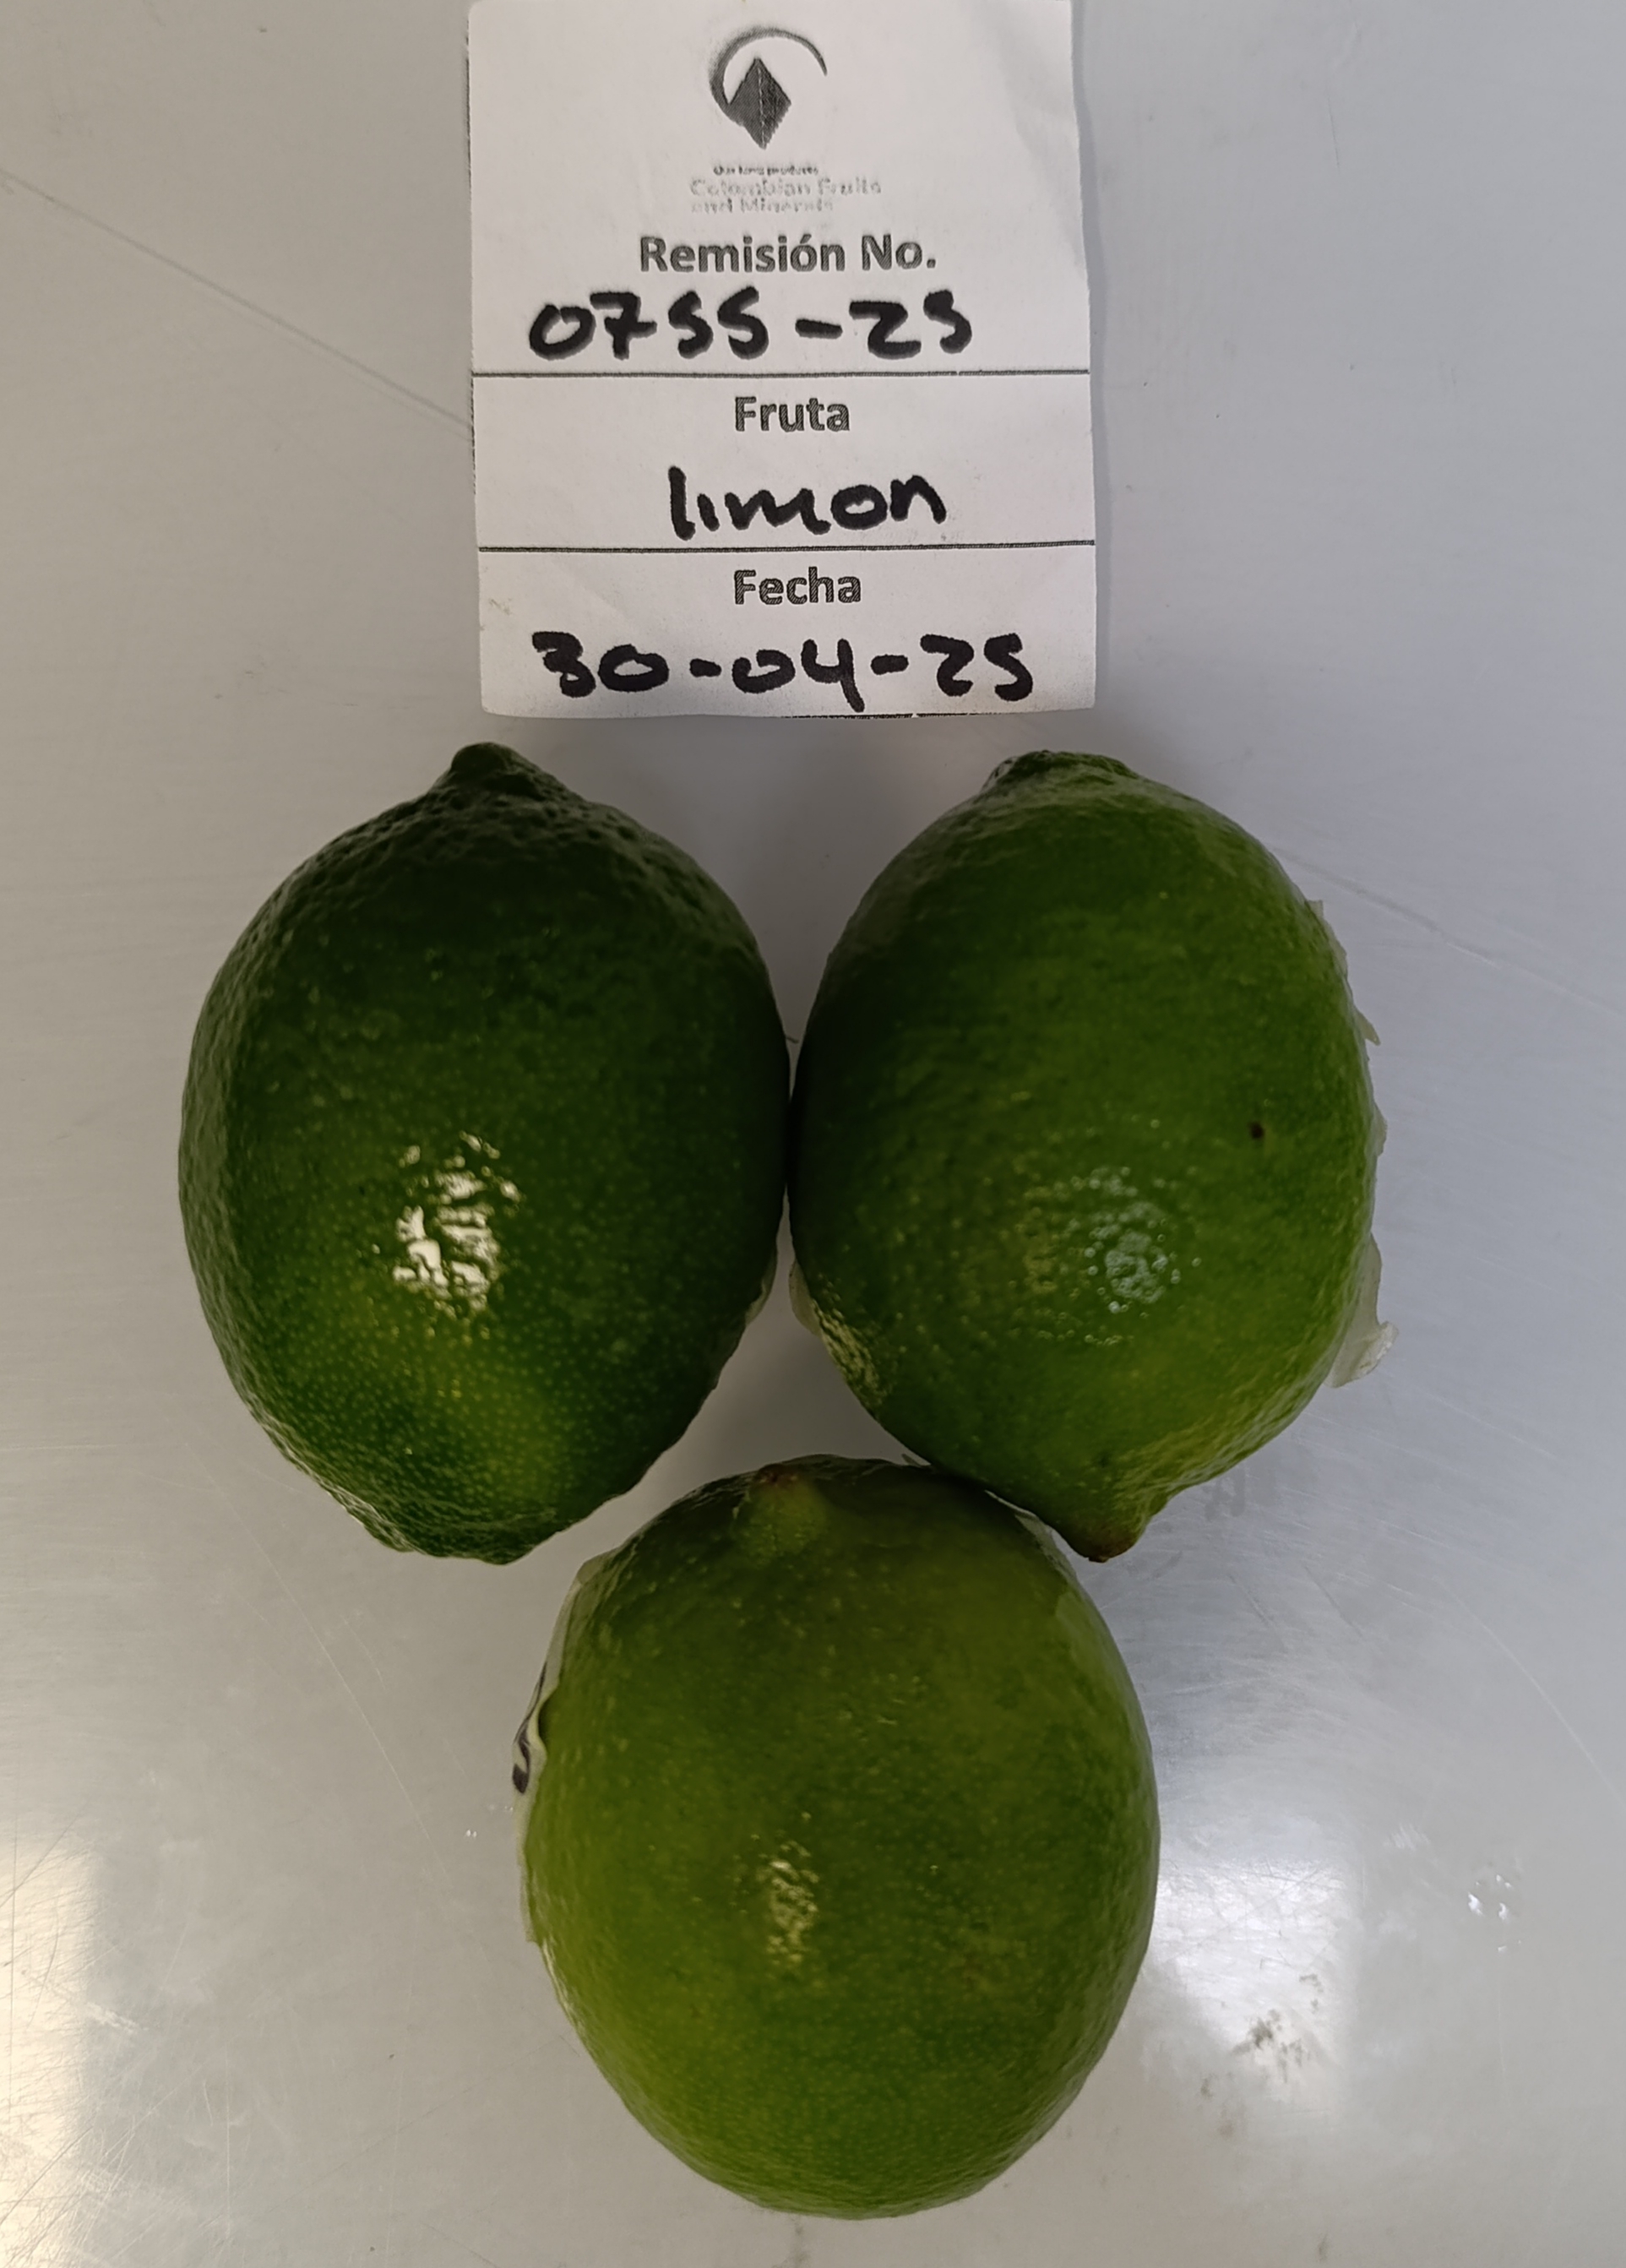 Our best products
Colombian Fruits
and Minerals
Remisión No.
0755-25
Fruta
limon
Fecha
30-04-25